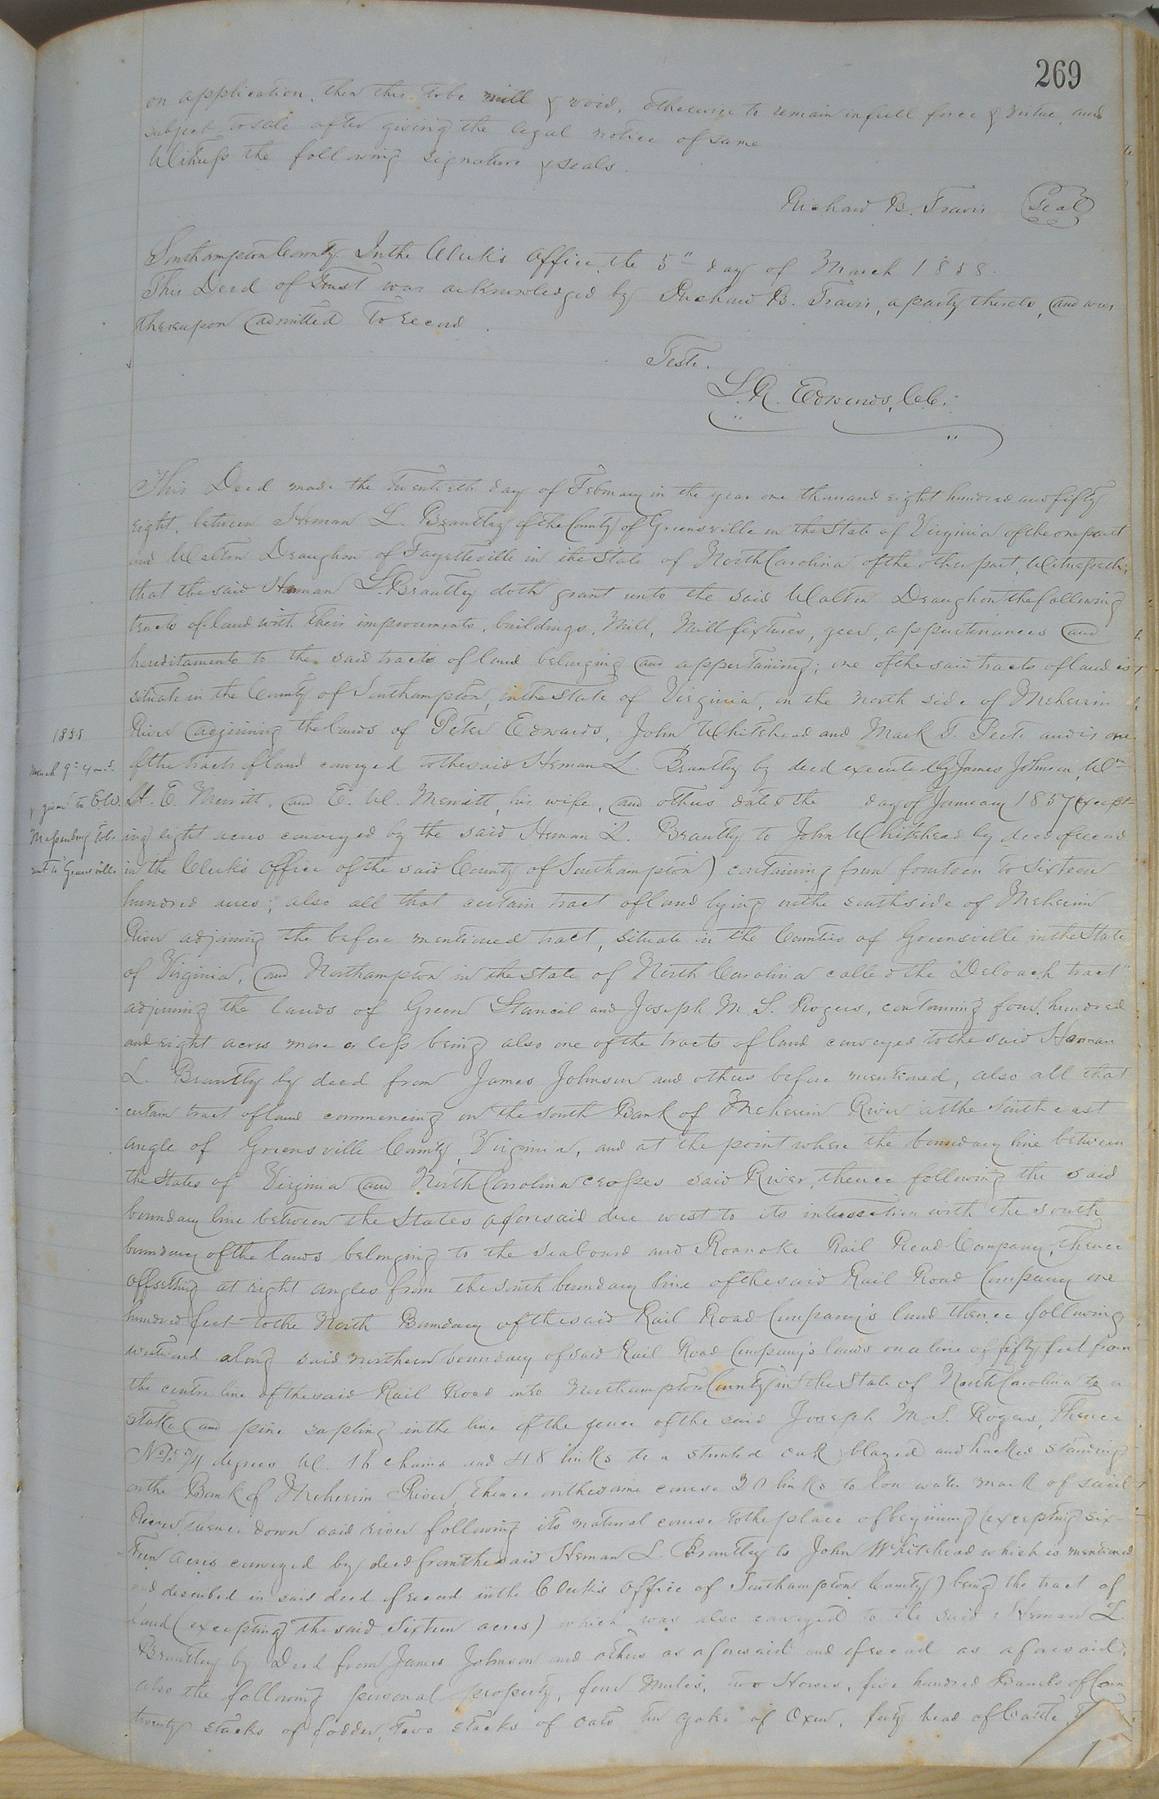 269
on application, then this to be null & void, otherwise to remain in full force & virtue, and
subject to sale after giving the legal notice of same
Witness the following signature & seals.
Richard B. Travis Seal
Southampton County. In the Clerk's Office, the 5" day of March 1858.
This Deed of Trust was acknowledged by Richard B. Travis, a party thereto, and was
thereupon admitted to record.
Teste.
L. R. Edwards, C.C.
This Deed made the twentieth day of February in the year one thousand eight hundred and fifty
eight, between Heman L. Brantley of the County of Greensville in the State of Virginia of the one part
and Walter Draughon of Fayetteville in the State of North Carolina of the other part, Witnesseth,
that the said Heman L. Brantley doth grant unto the said Walter Draughon the following
tracts of land with their improvements, buildings, Mill, Mill fixtures, gear, appurtenances and
hereditaments to the said tracts of land belonging and appertaining; one of the said tracts of land is
situate in the County of Southampton, in the State of Virginia, on the north side of Meherrin
River adjoining the lands of Peter Edwards, John Whitehead and Mark T. Peete and is one
of the tracts of land conveyed to the said Heman L. Brantley by deed executed by James Johnson, Wm
H. E. Merritt, and E. W. Merritt, his wife, and others dated the day of January 1857 (except-
ing eight acres conveyed by the said Heman L. Brantley to John Whitehead by deed of record
in the Clerk's Office of the said County of Southampton) containing from fourteen to sixteen
hundred acres; also all that certain tract of land lying on the south side of Meherrin
River adjoining the before mentioned tract, situate in the Counties of Greensville in the State
of Virginia, and Northampton in the State of North Carolina called the "Deloach tract"
adjoining the lands of Green Stancil and Joseph M. S. Rogers, containing four hundred
and eight acres more or less being also one of the tracts of land conveyed to the said Heman
L. Brantley by deed from James Johnson and others before mentioned, also all that
certain tract of land commencing on the South Bank of Meherrin River at the South east
angle of Greensville County, Virginia, and at the point where the boundary line between
the States of Virginia and North Carolina crosses said River, thence following the said
boundary line between the States aforesaid due west to its intersection with the south
boundary of the lands belonging to the Seaboard and Roanoke Rail Road Company, thence
offsetting at right angles from the south boundary line of the said Rail Road Company one
hundred feet to the North Boundary of the said Rail Road Company's land thence following
westward along said northern boundary of said Rail Road Company's lands on a line of fifty feet from
the centre line of the said Rail Road into Northampton County in the State of North Carolina to a
stake and pine sapling in the line of the fence of the said Joseph M. S. Rogers, thence
degrees W. 16 chains and 48 links to a stunted oak blazed and hacked standing
on the Bank of Meherrin River, thence on the same course 30 links to low water mark of said
River, thence down said river following its natural course to the place of beginning (excepting six-
teen acres conveyed by deed from the said Heman L. Brantley to John Whitehead which is mentioned
and described in said deed of record in the Clerk's Office of Southampton County) being the tract of
land (excepting the said sixteen acres) which was also conveyed to the said Heman L.
Brantley by Deed from James Johnson and others as aforesaid and of record as aforesaid;
also the following personal property, four Mules, two Horses, five hundred Barrels of Corn
twenty stacks of fodder, two stacks of oats ten yoke of Oxen, forty head of Cattle,
1858
March 9th
to Greensville